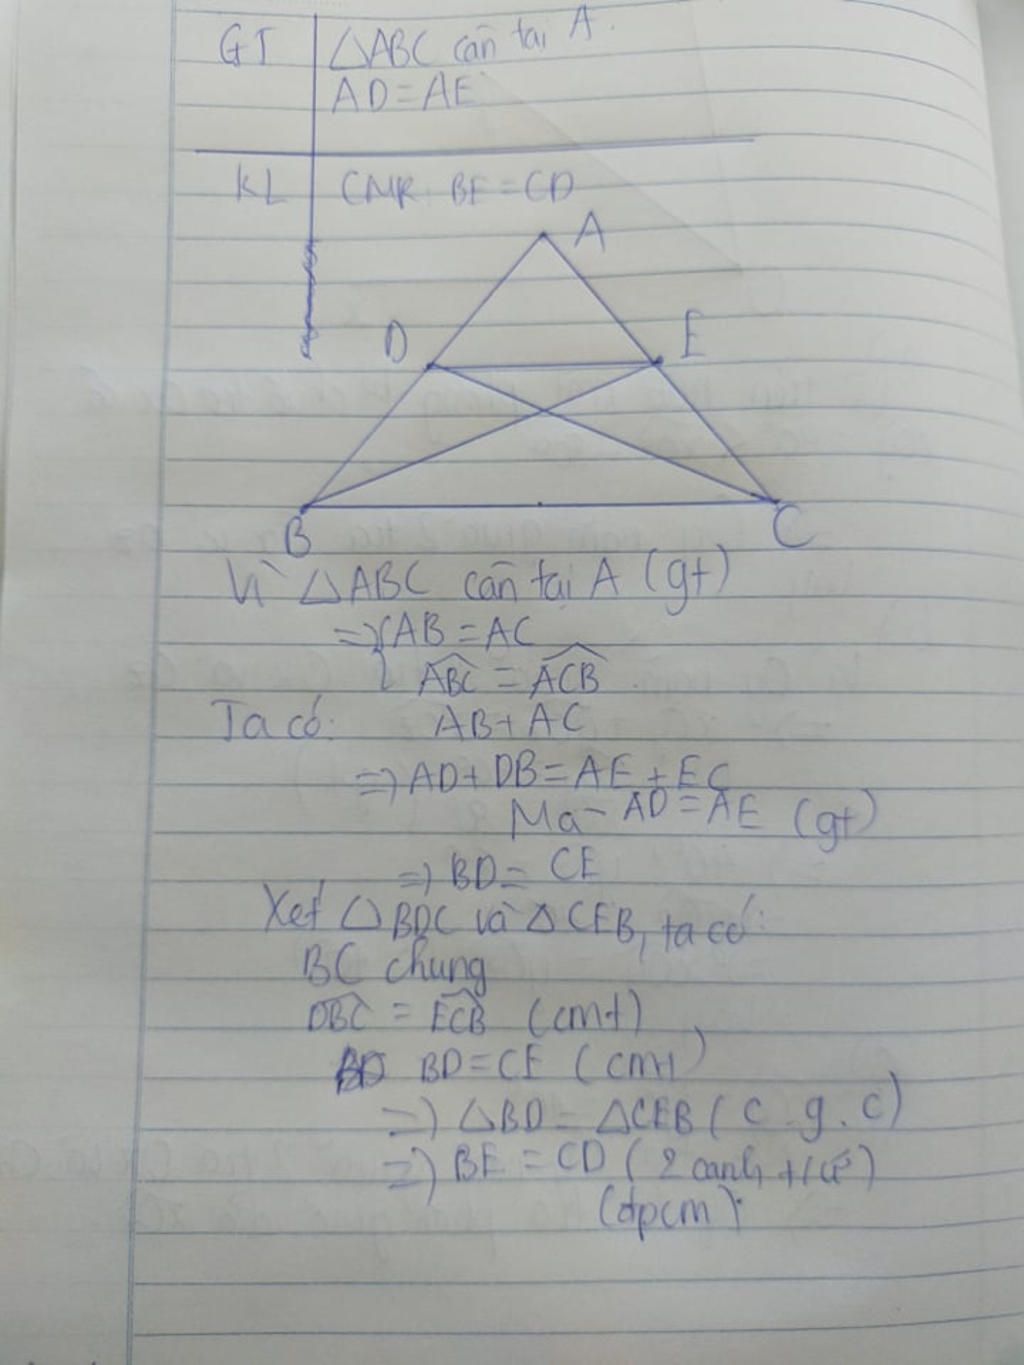 GT △ABC cân tại A.
AD = AE
KL CMR: BE = CD
A
D E
B C
Vì △ABC cân tại A (gt)
=> { AB = AC
ABC = ACB
Ta có: AB + AC
=> AD + DB = AE + EC
Mà AD = AE (gt)
=> BD = CE
Xét △BDC và △CEB, ta có:
BC chung
DBC = ECB (cmt)
BD = CE (cmt)
=> △BD = △CEB (c.g.c)
=> BE = CD (2 cạnh t/ứ)
(đpcm).